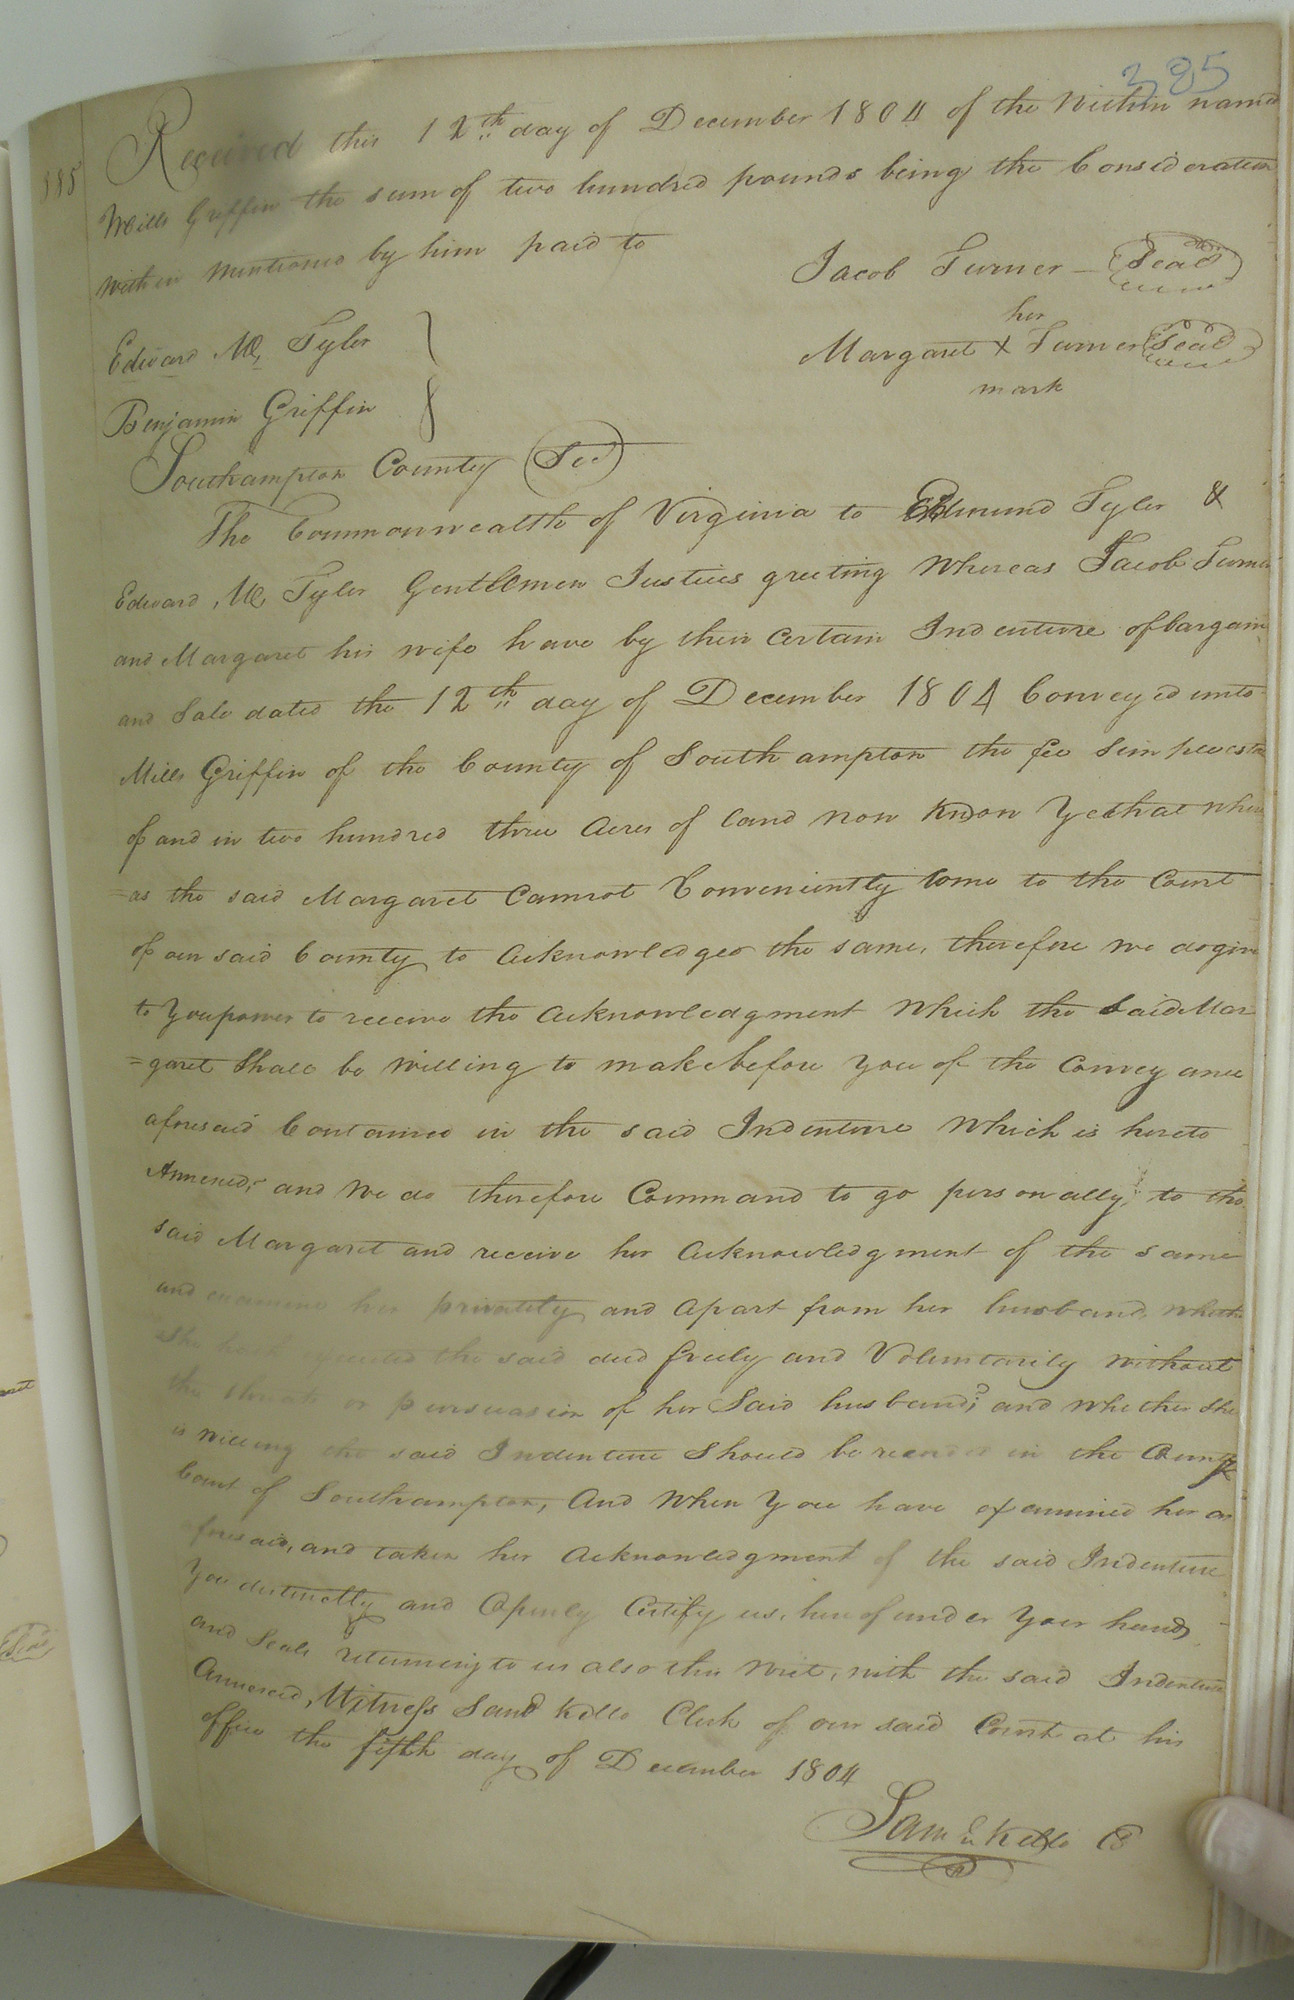 385
Received this 12th day of December 1804 of the Within named
Mills Griffin the sum of two hundred pounds being the Consideration
within mentioned by him paid to
Jacob Turner - Seal
her
Margaret X Turner Seal
mark
Edward M. Tyler
Benjamin Griffin
Southampton County Sct
The Commonwealth of Virginia to Edmund Tyler &
Edward M Tyler Gentlemen Justices greeting Whereas Jacob Turner
and Margaret his wife have by their Certain Indenture of bargain
and Sale dated the 12th day of December 1804 Conveyed unto
Mills Griffin of the County of Southampton the fee Simple esta
of and in two hundred three Acres of land now Know Ye that Where
=as the said Margaret Cannot Conveniently Come to the Court
of our said County to Acknowledged the same, therefore we do give
to You power to receive the Acknowledgment Which the Said Mar
=garet Shall be Willing to make before You of the Conveyance
aforesaid Contained in the said Indenture Which is hereto
Annexed, and We do therefore Command to go personally, to the
said Margaret and receive her Acknowledgment of the same
and examine her privately and Apart from her husband, whether
She hath executed the said deed freely and Voluntarily without
the threats or pursuasion of her Said husband; and Whether She
is Willing the said Indenture Should be recorded in the County
Court of Southampton, And When You have examined her as
aforesaid, and taken her Acknowledgment of the said Indenture
You distinctly and Openly Certify us, hereof under Your hands
and Seals returning to us also this Writ, with the said Indenture
Annexed, Witness Saml Kello Clerk of our said Court at his
office the fifth day of December 1804
Saml Kello C